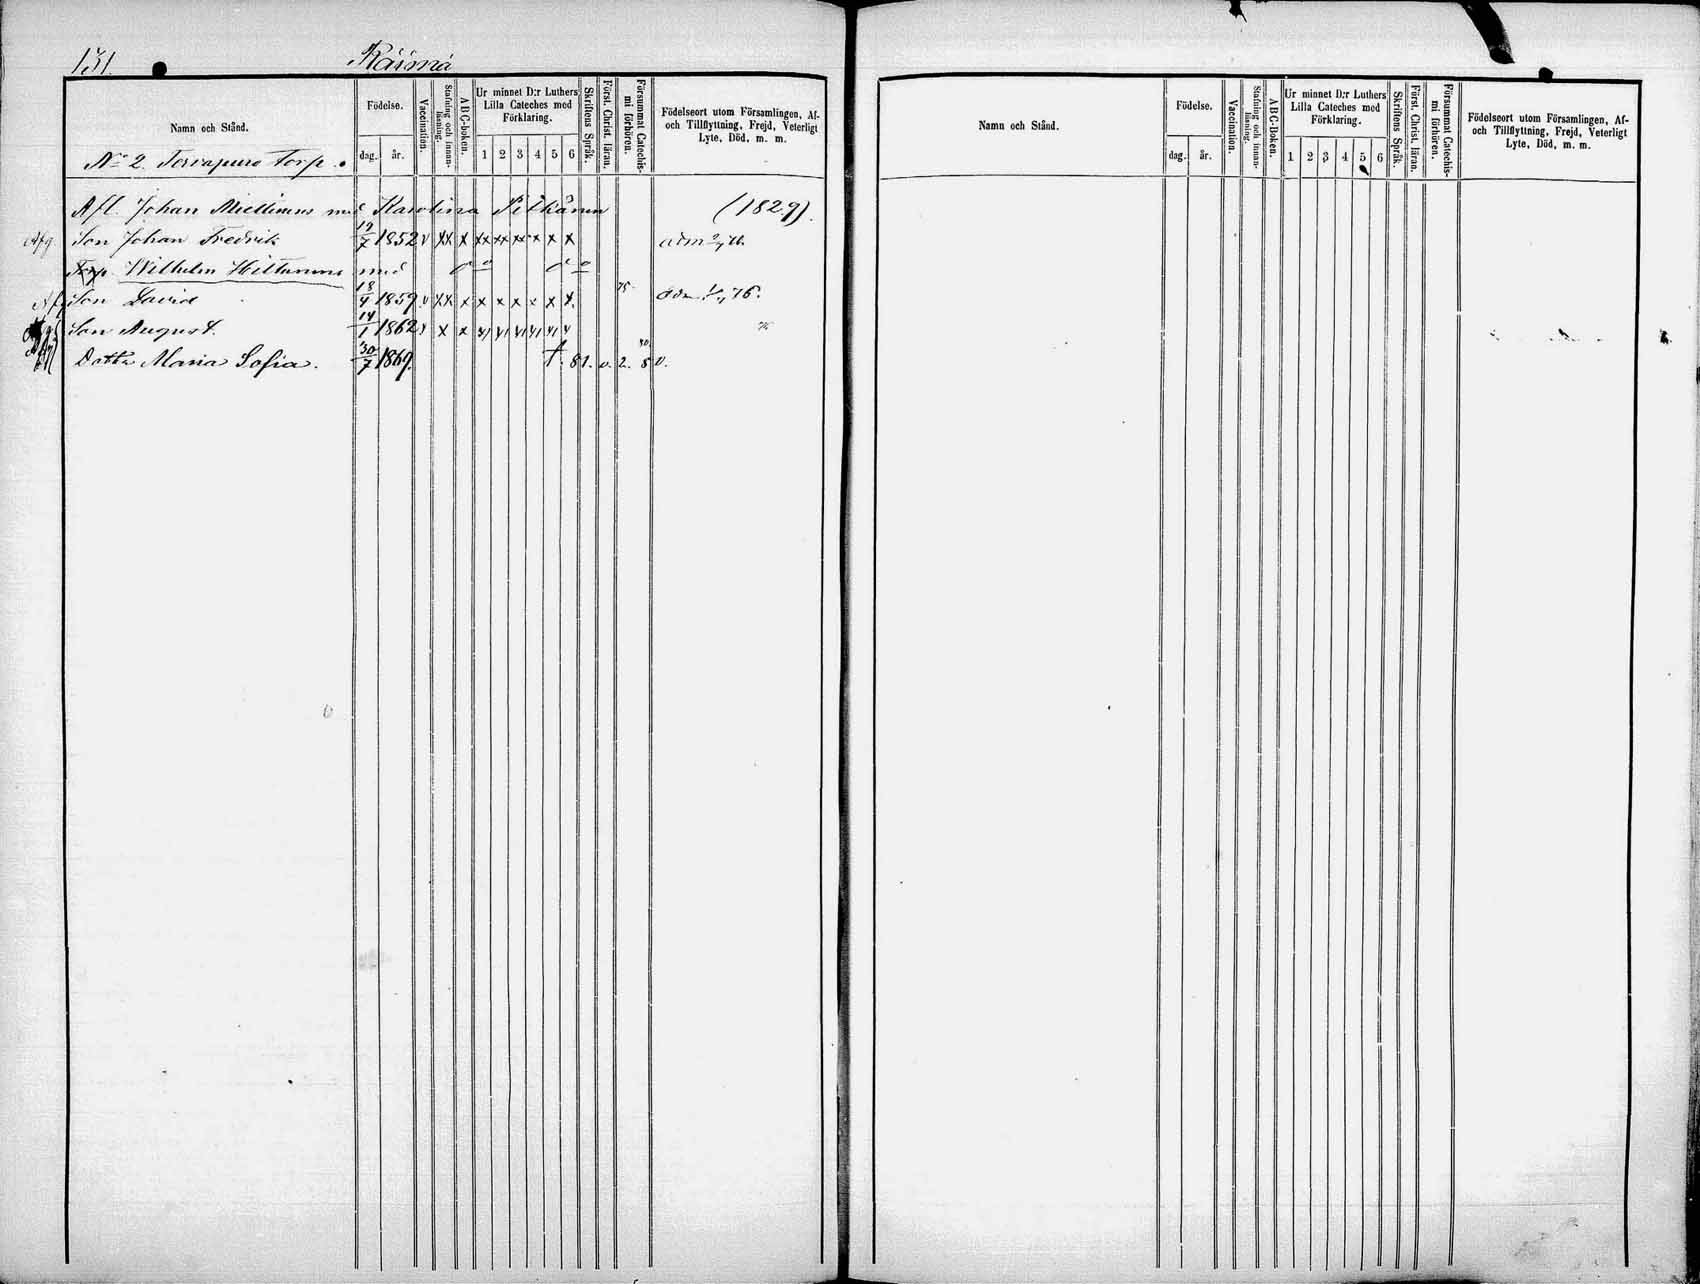 131. Räsmä
Namn och Stånd.
Födelse.
dag. år.
Vaccination.
Stafning och innan-läsning.
ABC-boken.
Ur minnet D:r Luthers
Lilla Cateches med
Förklaring.
1 2 3 4 5 6
Skriftens Språk.
Först. Christ. läran.
Försummat Catechis-
mi förhören.
Födelseort utom Församlingen, Af-
och Tillflyttning, Frejd, Veterligt
Lyte, Död, m. m.
No 2. Torp.
Afl. Johan Miettinens med Karolina Pitkänen (1829).
Afg. Son Johan Fredrik 19/7 1852 v xx x xx xx xx x x x adm
Torp. Wilhelm Hiltunens med
Son David 18/4 1859 v xx x x x x x x x 75 76.
Son August. 14/1 1862 x x
Dotter Maria Sofia. 30/7 1869. † 81. 2.
Namn och Stånd.
Födelse.
dag. år.
Vaccination.
Stafning och innan-läsning.
ABC-Boken.
Ur minnet D:r Luthers
Lilla Cateches med
Förklaring.
1 2 3 4 5 6
Skriftens Språk.
Först. Christ. läran.
Försummat Catechis-
mi förhören.
Födelseort utom Församlingen, Af-
och Tillflyttning, Frejd, Veterligt
Lyte, Död, m. m.